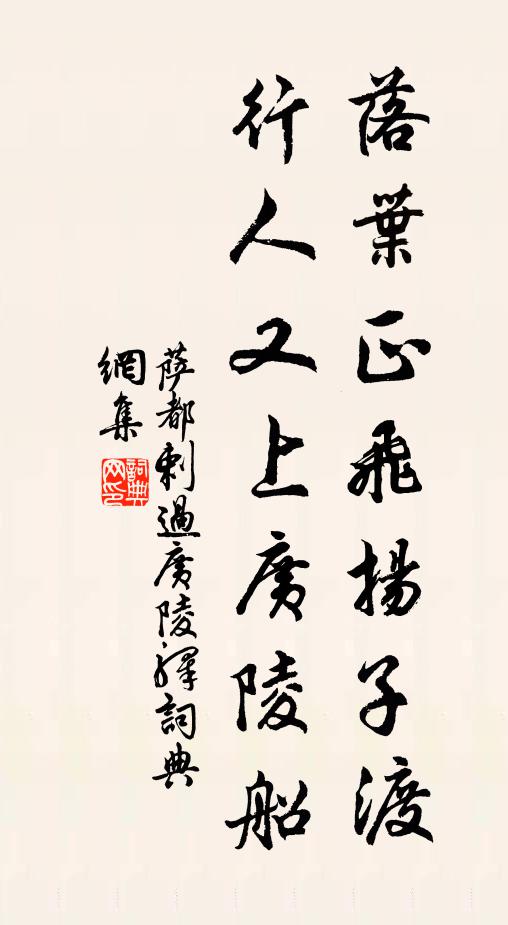 落葉正飛揚子渡
行人又上廣陵船
薩都剌過廣陵驛詞典
網集
詞典
網印